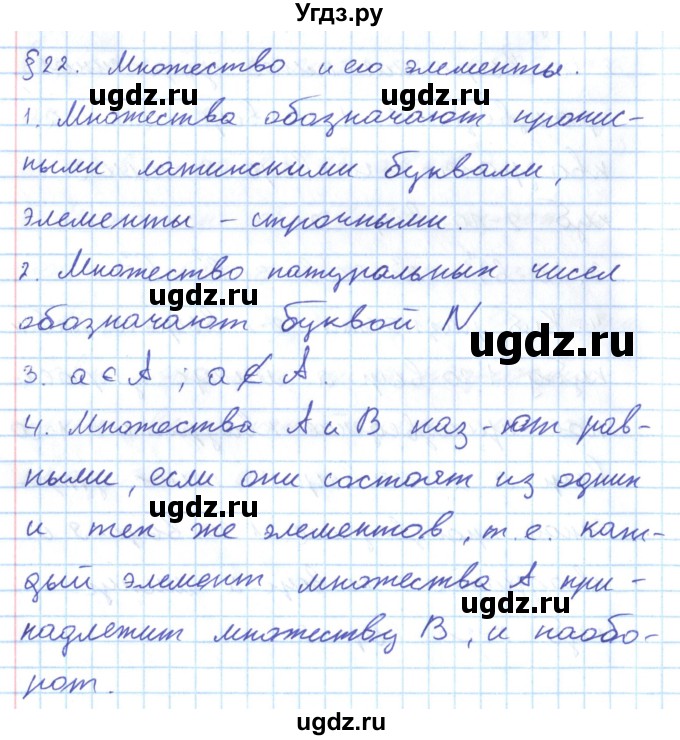 Угдз.ру
§22. Множество и его элементы.
ugdz.ru ugdz.ru
1. Множества обозначают пропис-
ными латинскими буквами,
элементы – строчными.
2. Множество натуральных чисел
ugdz.ru
обозначают буквой N
ugdz.ru
3. a ∈ A ; a ∉ A.
4. Множества A и B наз-ют рав-
ными, если они состоят из одних
ugdz.ru
и тех же элементов, т.е. каж-
дый элемент множества A при-
ugdz.ru
надлежит множеству B, и наобо-
рот.
ugdz.ru